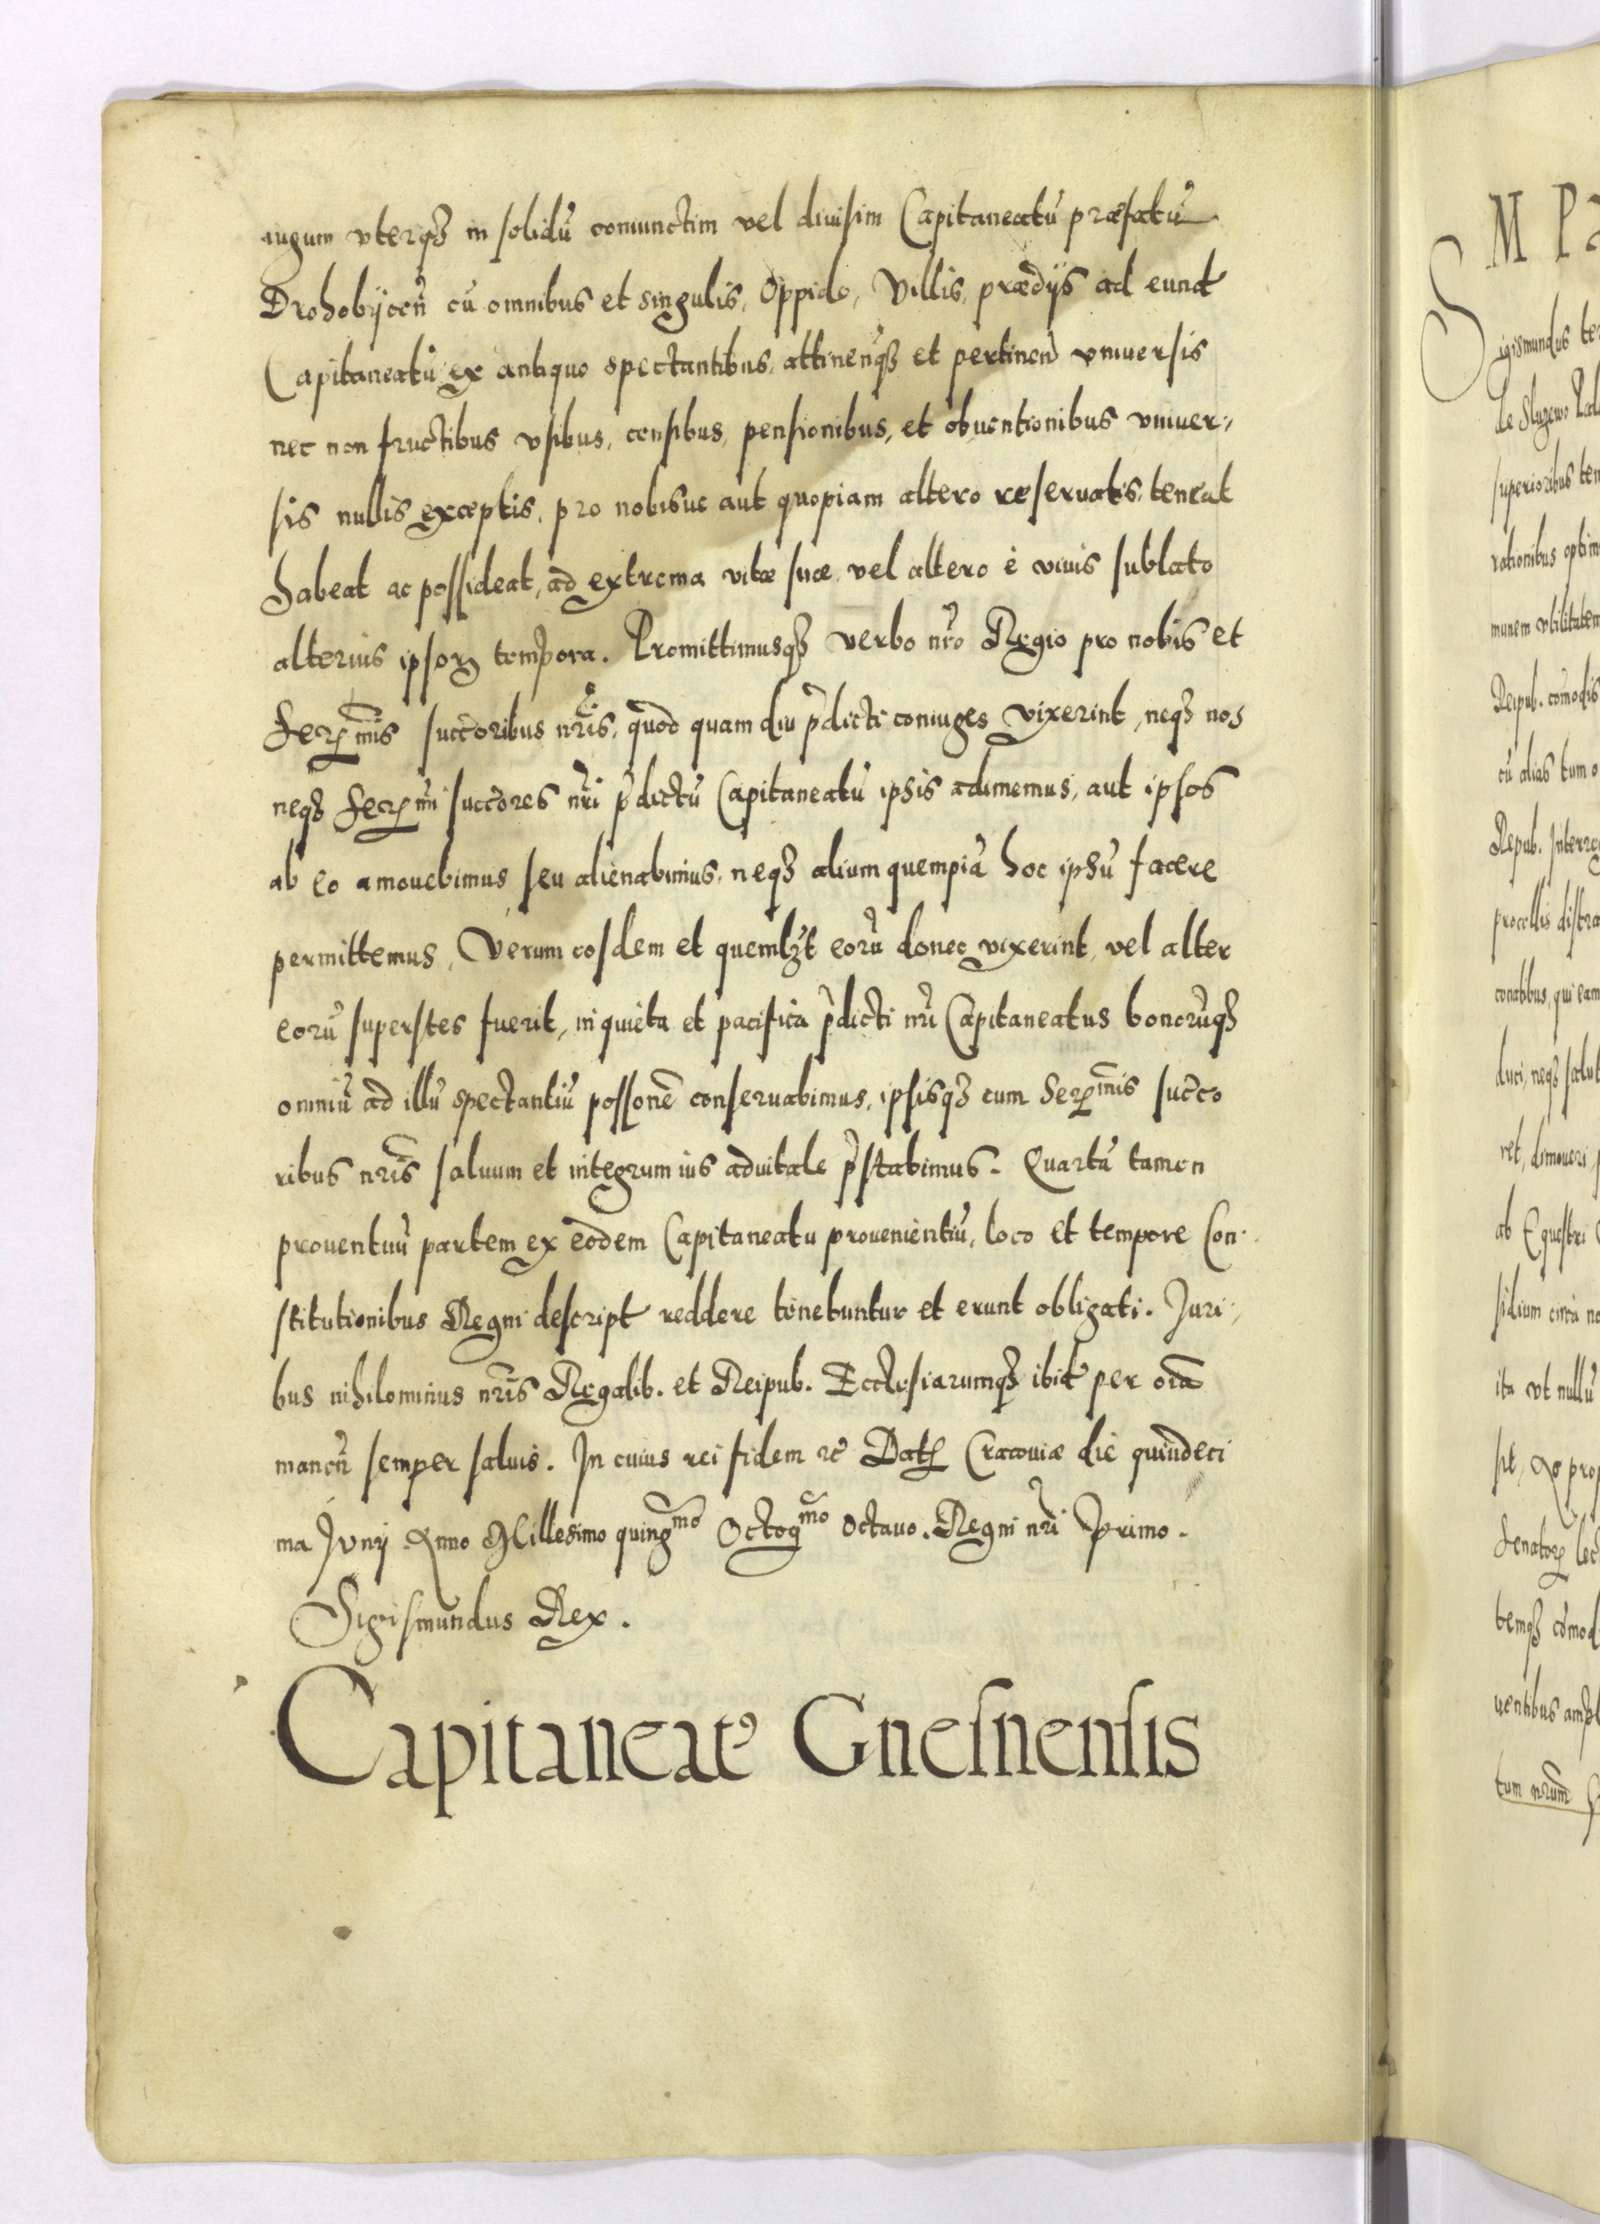 iugum vterq₃ in solidū coniunctim vel diuisim Capitaneatū præfatū
Drohobÿcen̄ cū omnibus et singulis, Oppido, Villis, prædijs ad eund
Capitaneatū ex antiquo spectantibus, attinen̄q₃ et pertinen̄ vniuersis
nec non fructibus vsibus, censibus, pensionibus, et obuentionibus vniuer⸗
sis nullis exceptis, pro nobisue aut quopiam altero reseruatis, teneat
habeat ac possideat, ad extrema vitæ suæ, vel altero è viuis sublato
alterius ipsoꝝ tempora. Promittimusq₃ verbo nr̄o Regio pro nobis et
Serᵐⁱˢ succ̄oribus nr̄is, quod quam diu p̄dicti coniuges vixerint, neq₃ nos
neq₃ Serᵐⁱ succ̄ores nr̄i p̄dictū Capitaneatū ipsis adimemus, aut ipsos
ab eo amouebimus seu alienabimus, neq₃ alium quempiā hoc ipsū facere
permittemus, Verum eosdem et quemlꝫt eorū donec vixerint, vel alter
eorū superstes fuerit, in quieta et pacifica p̄dicti nr̄i Capitaneatus bonorūq₃
omniū ad illū spectantiū possonē conseruabimus, ipsisq₃ cum Serᵐⁱˢ succ̄o
ribus nr̄is saluum et integrum ius aduitale p̄stabimus. Quartā tamen
prouentuū partem ex eodem Capitaneatu prouenientiū, loco et tempore Con⸗
stitutionibus Regni descript reddere tenebuntur et erunt obligati. Juri⸗
bus nihilominus nr̄is Regalib. et Reipub. Ecclesiarumq₃ ibid per oīa
manen̄ semper saluis. In cuius rei fidem ꝛc̄ Datꝭ Cracoviæ die quindeci
ma Junij Anno Millesimo quingᵐᵒ Octogᵐᵒ octauo. Regni nr̄i Primo.
Sigismundus Rex.
Capitaneatꝰ Gnesnensis
M
Sigismundus
de Sluzewo
superioribus
rationibus
munem vtilitatem
Reipub. comodis
cū alias tum
Repub.
procellis
conatibus, qui eam
duci, neq₃
ret, dimoueri
ab Equestri
sidium circa
ita vt nullū
sit,
temq₃
uentibus
tum nr̄um